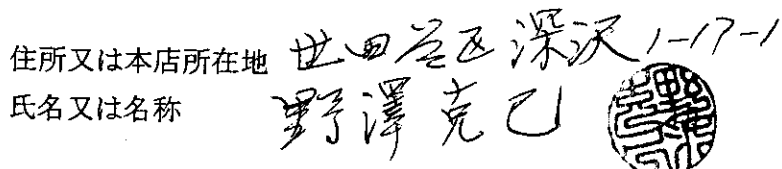 住所又は本店所在地 世田谷区深沢1-17-1
氏名又は名称 野澤克己